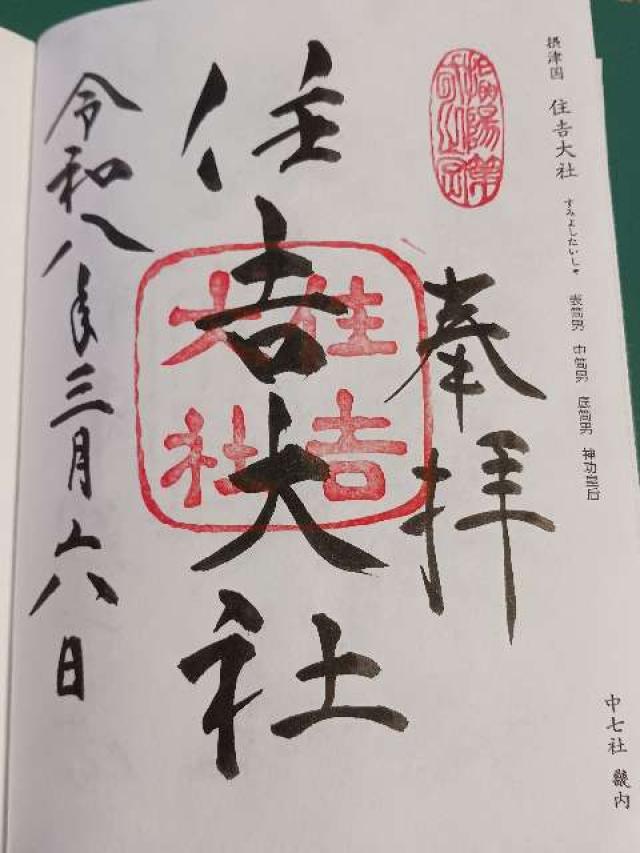 摂津国 住吉大社 すみよしたいしゃ 表筒男 中筒男 底筒男 神功皇后
中七社 畿内
奉拝
住吉大社
住吉
大社
令和八年三月六日